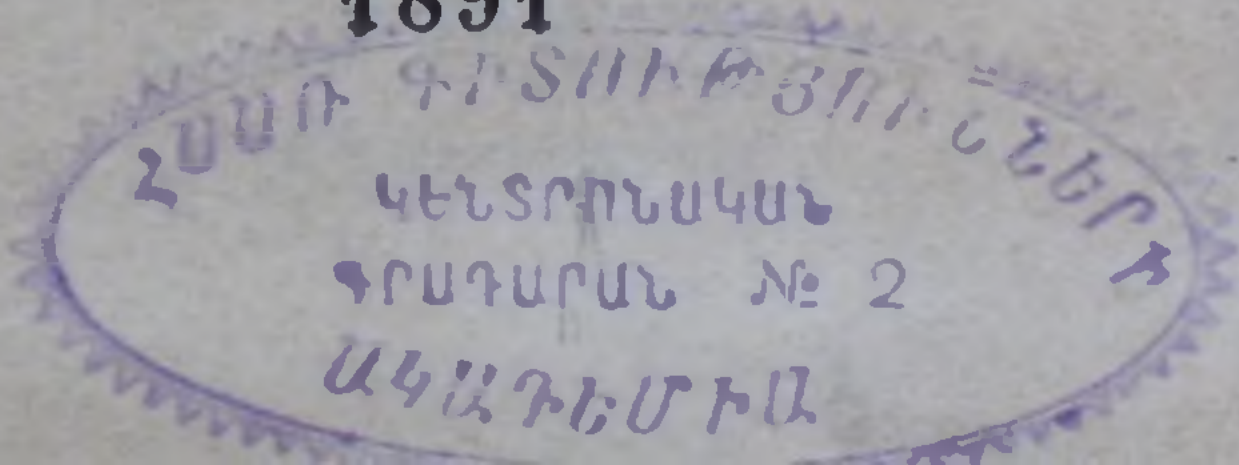 1891
ՀՍՍՌ ԳԻՏՈՒԹՅՈՒՆՆԵՐԻ
ԿԵՆՏՐՈՆԱԿԱՆ
ԳՐԱԴԱՐԱՆ № 2
ԱԿԱԴԵՄԻԱ